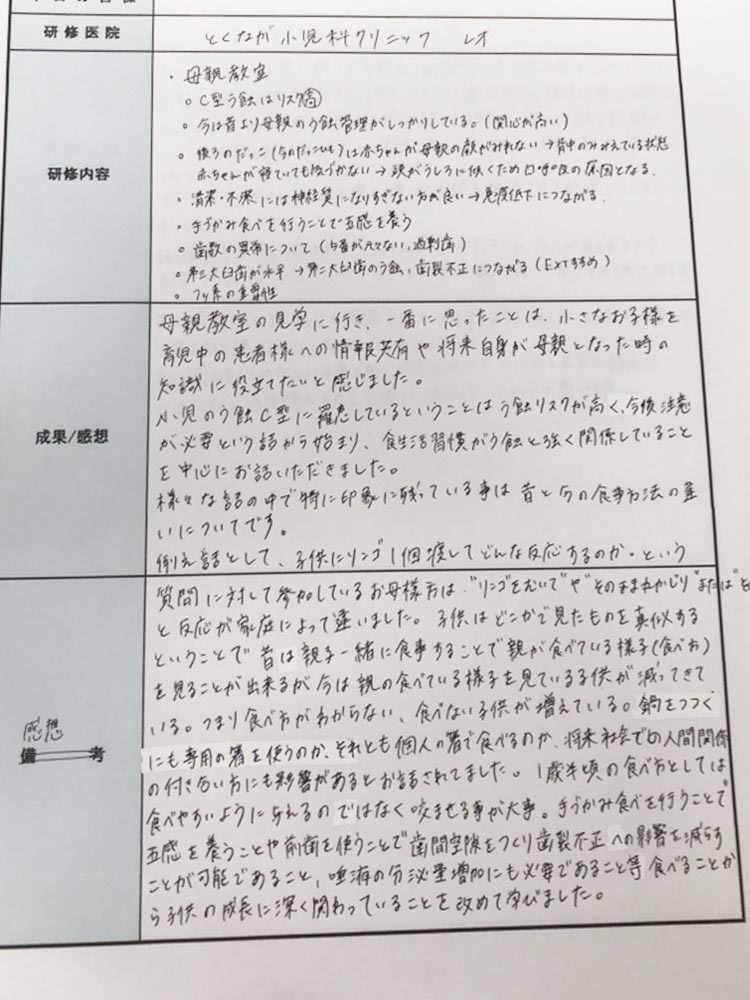 研修医院 とくなが小児科クリニック レオ
研修内容
・母親教室
○ C型う蝕はリスク高
○ 今は昔より母親のう蝕管理がしっかりしている。(関心が高い)
○ 後ろのだっこ(今のだっこひも)は赤ちゃんが母親の顔がみれない→背中のみみえている状態
赤ちゃんが寝ていても気づかない→頭がうしろに傾くため口呼吸の原因となる.
・清潔・不潔には神経質になりすぎない方が良い→免疫低下につながる.
・手づかみ食べを行うことで五感を養う
○ 歯数の異常について(5番が元々ない、過剰歯)
○ 第三大臼歯が水平→第二大臼歯のう蝕、歯製不正につながる(Extすすめ)
○ フッ素の重要性
成果/感想
母親教室の見学に行き、一番に思ったことは、小さなお子様を
育児中の患者様への情報共有や将来自身が母親となった時の
知識に役立てたいと感じました。
小児のう蝕C型に罹患しているということはう蝕リスクが高く、今後注意
が必要という話から始まり、食生活習慣がう蝕と強く関係していること
を中心にお話いただきました。
様々な話の中で特に印象に残っている事は昔と今の食事方法の違
いについてです。
例え話として、子供にリンゴ1個渡してどんな反応するのか・という
感想
備考
質問に対して参加しているお母様方は、"リンゴをむいて"や"そのまままるかじり"または"
と反応が家庭によって違いました。子供はどこかで見たものを真似する
ということで昔は親子一緒に食事することで親が食べている様子(食べ方)
を見ることが出来るが今は親の食べている様子を見ている子供が減ってきて
いる。つまり食べ方がわからない、食べない子供が増えている。鍋をつつく
にも専用の箸を使うのか、それとも個人の箸で食べるのか、将来社会での人間関係
の付き合い方にも影響があるとお話されてました。1歳半頃の食べ方としては
食べやすいように与えるのではなく咬ませる事が大事。手づかみ食べを行うことで
五感を養うことや前歯を使うことで歯間空隙をつくり歯製不正への影響を減らす
ことが可能であること、唾液の分泌量増加にも必要であること等食べることか
ら子供の成長に深く関わっていることを改めて学びました。